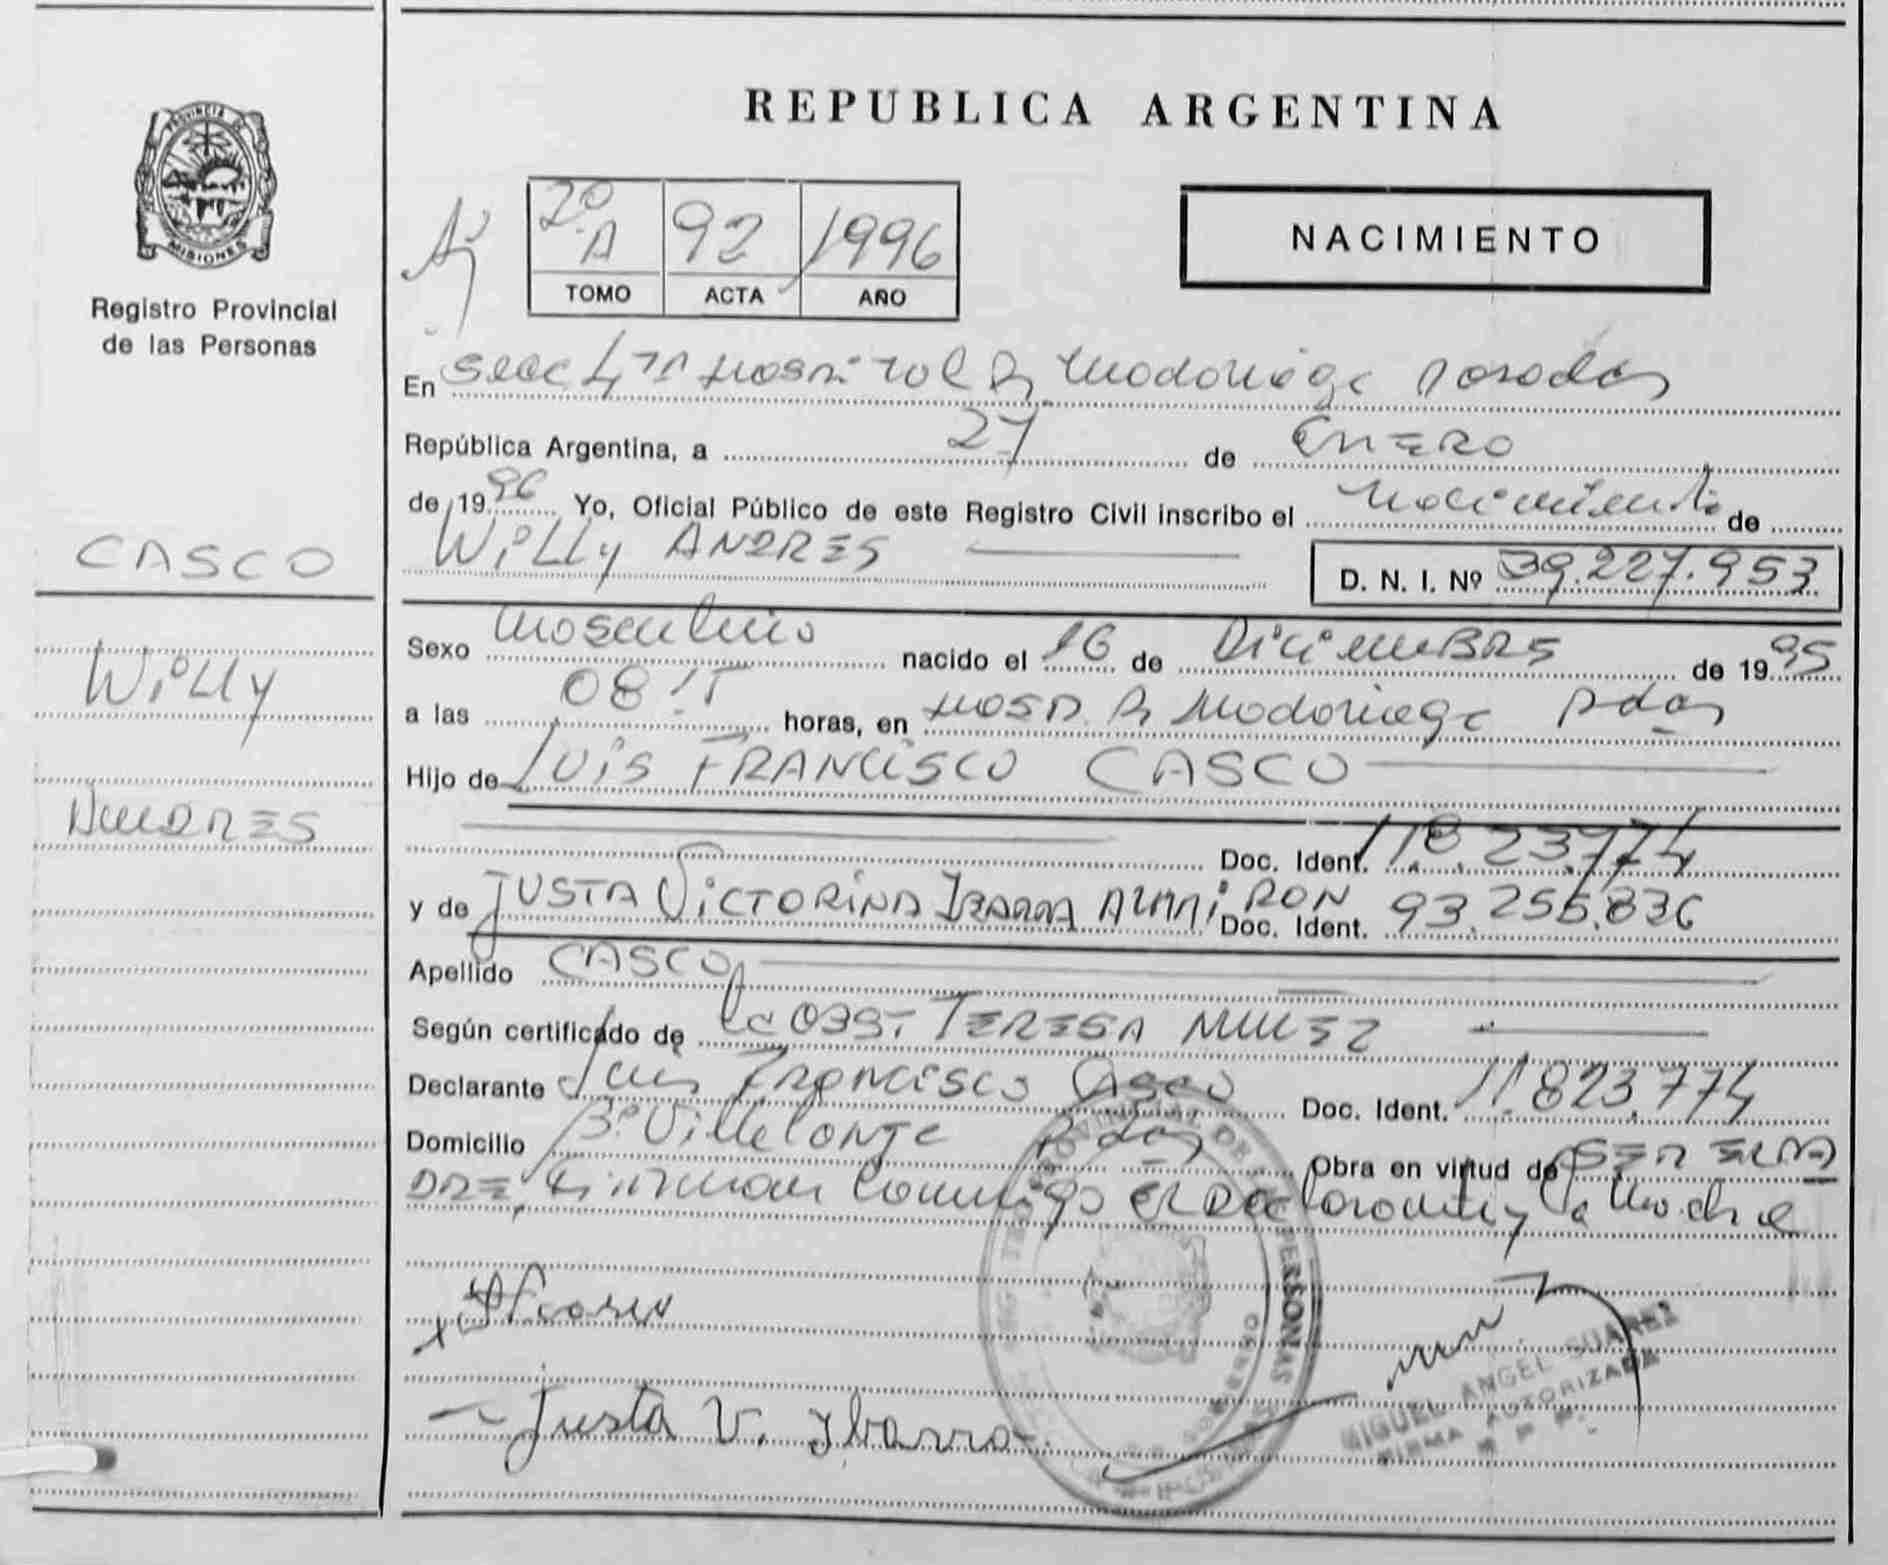 REPUBLICA ARGENTINA
PROVINCIA DE MISIONES
Registro Provincial
de las Personas
2º A 92 1996
TOMO ACTA AÑO
NACIMIENTO
En Secc 4ta Hospital R. Madariaga Posadas
República Argentina, a 27 de ENERO
de 1996 Yo, Oficial Público de este Registro Civil inscribo el nacimiento de
WILLY ANDRES D. N. I. Nº 39.227.953
CASCO
Willy
ANDRES
Sexo masculino nacido el 16 de DiciemBRE de 1995
a las 08 horas, en Hosp. R. Madariaga Pdas
Hijo de LUIS FRANCISCO CASCO
Doc. Ident. 11.823.774
y de JUSTA VICTORINA IBARRA ALMIRON Doc. Ident. 93.255.836
Apellido CASCO
Según certificado de la OBST TERESA
Declarante Luis FRANCISCO CASCO Doc. Ident. 11.823.774
Domicilio Bº Villalonga Pdas Obra en virtud de SER EL PA
DRE, Firman conmigo el Declarante y la Madre
Justa V. Ibarra
MIGUEL ANGEL SUAREZ
FIRMA AUTORIZADA